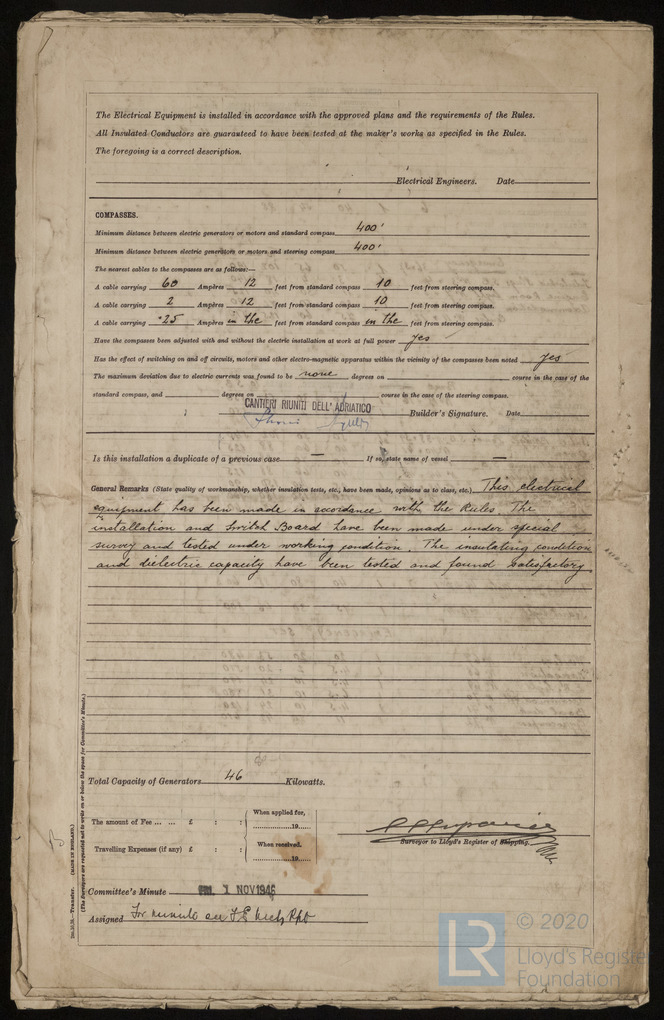 The Electrical Equipment is installed in accordance with the approved plans and the requirements of the Rules.
All Insulated Conductors are guaranteed to have been tested at the maker's works as specified in the Rules.
The foregoing is a correct description.
Electrical Engineers. Date
COMPASSES.
Minimum distance between electric generators or motors and standard compass 400'
Minimum distance between electric generators or motors and steering compass 400'
The nearest cables to the compasses are as follows:—
A cable carrying 60 Ampères 12 feet from standard compass 10 feet from steering compass.
A cable carrying 2 Ampères 12 feet from standard compass 10 feet from steering compass.
A cable carrying ·25 Ampères in the feet from standard compass in the feet from steering compass.
Have the compasses been adjusted with and without the electric installation at work at full power yes
Has the effect of switching on and off circuits, motors and other electro-magnetic apparatus within the vicinity of the compasses been noted yes
The maximum deviation due to electric currents was found to be none degrees on course in the case of the
standard compass, and degrees on course in the case of the steering compass.
CANTIERI RIUNITI DELL' ADRIATICO
Builder's Signature. Date
Is this installation a duplicate of a previous case — If so, state name of vessel —
General Remarks (State quality of workmanship, whether insulation tests, etc., have been made, opinions as to class, etc.) This electrical
equipment has been made in accordance with the Rules. The
installation and Switch Board have been made under special
survey and tested under working condition. The insulating condition
and dielectric capacity have been tested and found satisfactory.
Total Capacity of Generators 46 Kilowatts.
The amount of Fee ... ... £ : :
When applied for,
19
Travelling Expenses (if any) £ : :
When received.
19
Surveyor to Lloyd's Register of Shipping.
Committee's Minute FRI. 1 NOV 1946
Assigned For minute see F.E. Mchy Rpt
Transfer. (MADE IN ENGLAND.)
(The Surveyors are requested not to write on or below the space for Committee's Minute.)
LR
© 2020
Lloyd's Register
Foundation